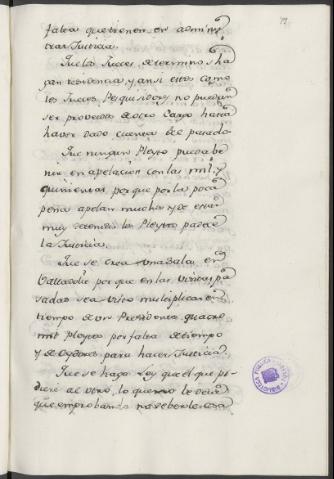 falta que tienen en adminis
trar Justicia.
Que los Jueces de terminos ha
gan residencia, y ansi estos como
los Jueces Pesquisidores no puedan
ser proveidos de otro Cargo hasta
haver dado cuenta del pasado
Que ningun Pleyto pueda be
nir en apelacion con las mil, y
quinientas, porque por las poca
penas apelan muchos, y de esto
muy detenido los Pleytos padece
la Justicia.
Que se crea una Sala en
Valladolid porque en las visitas pa
sadas se a visto multiplicar en
tiempo de un Presidente quatro
mil Pleytos por falta de tiempo
y de Oydores para hacer Justicia.
Que se haga Ley que el que pi
diere al otro, lo que no le deve
que emprobando no deberle cosa